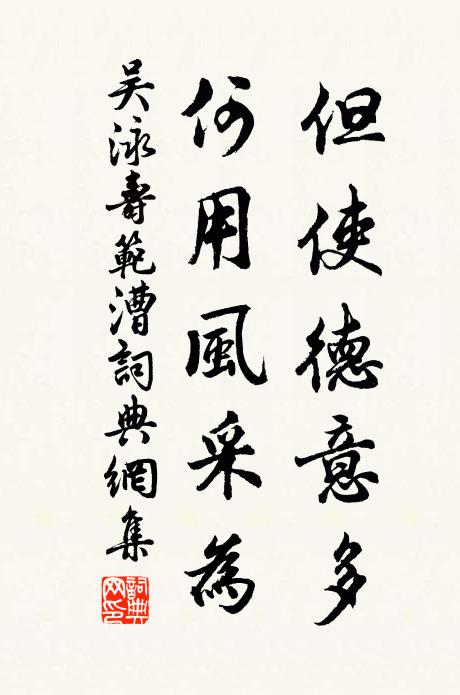 但使德意多
何用風采為
吳泳壽範漕詞典網集
詞典網印